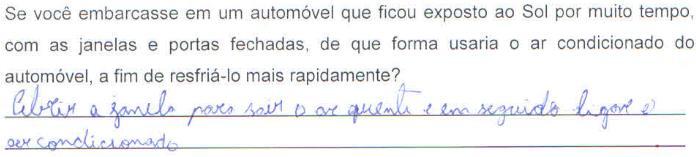 Se você embarcasse em um automóvel que ficou exposto ao Sol por muito tempo,
com as janelas e portas fechadas, de que forma usaria o ar condicionado do
automóvel, a fim de resfriá-lo mais rapidamente?
Abrir a janela para sair o ar quente e em seguida ligar o
ar condicionado